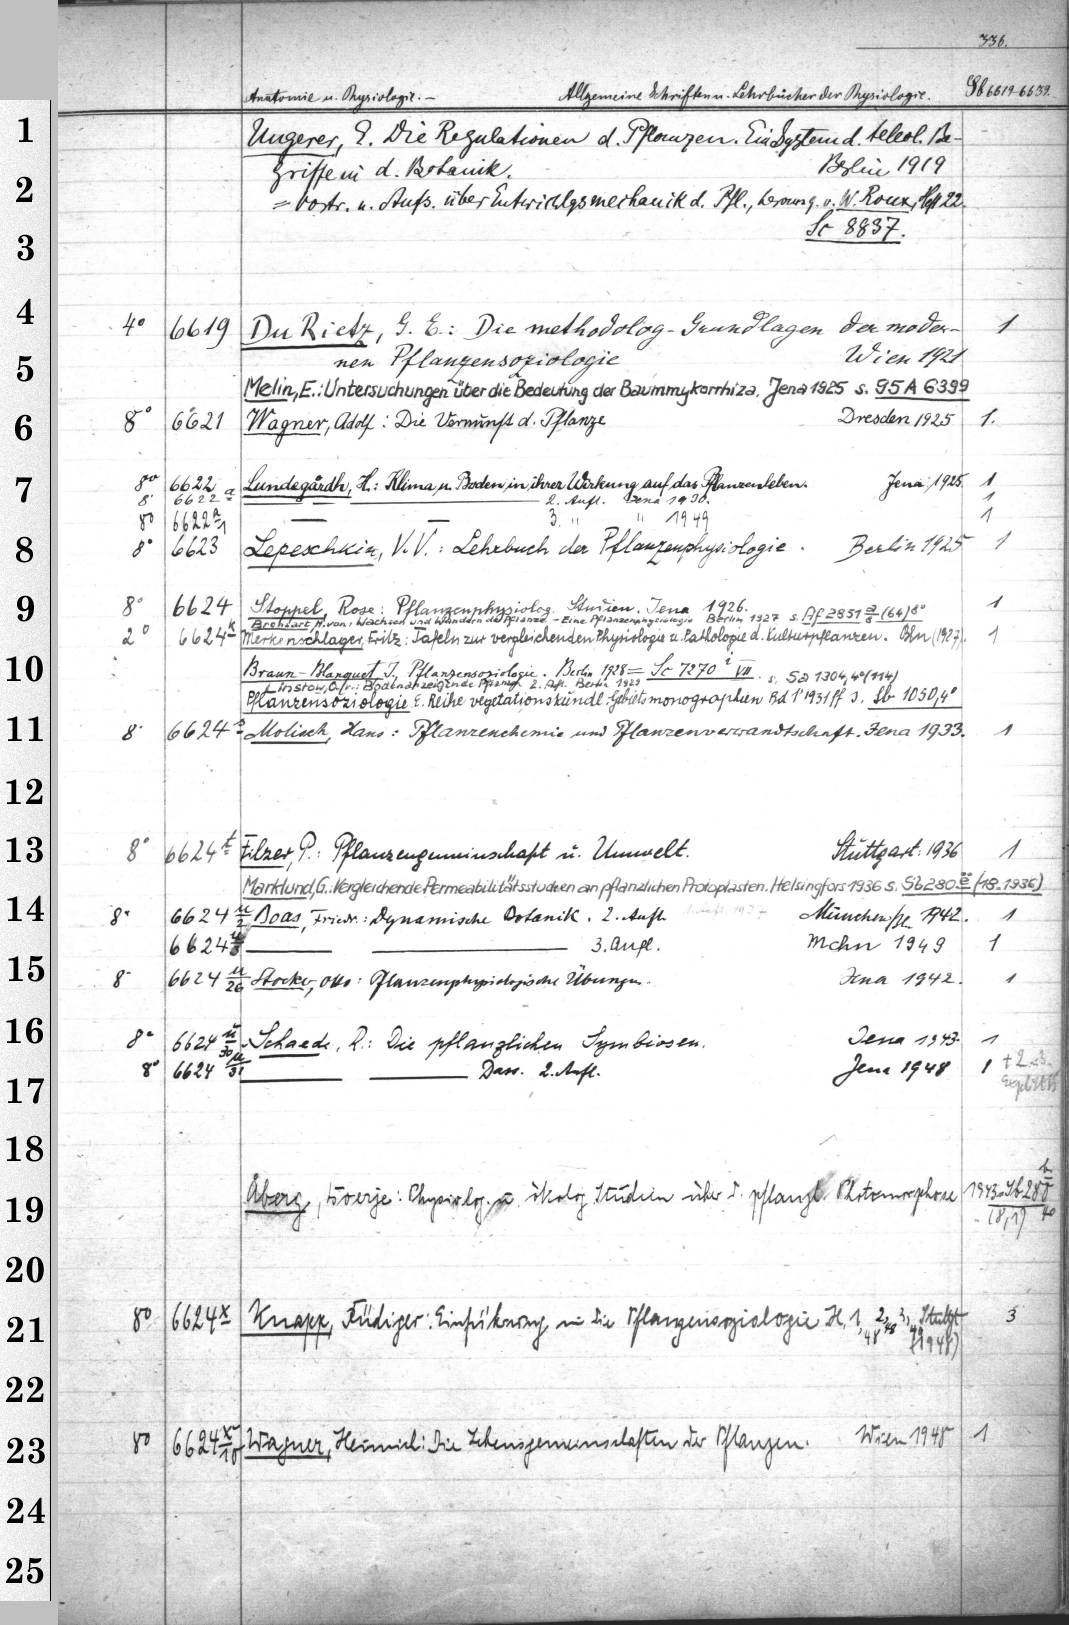 336.
Anatomie u. Physiologie. — Allgemeine Schriften u. Lehrbücher der Physiologie. Sb 6619-6639.
1
Ungerer, E. Die Regulationen d. Pflanzen. Ein System d. teleol. Be-
griffe in d. Botanik. Berlin 1919
2
= Vortr. u. Aufs. über Entwicklgsmechanik d. Pfl., herausg. v. W. Roux, Hft 22.
Sc 8837.
3
4
4° 6619 Du Rietz, G. E.: Die methodolog. Grundlagen der moder- 1
nen Pflanzensoziologie Wien 1921
5
Melin, E.: Untersuchungen über die Bedeutung der Baummykorrhiza. Jena 1925 s. 95 A 6399
6
8° 6621 Wagner, Adolf: Die Vernunft d. Pflanze Dresden 1925 1.
7
8° 6622 Lundegårdh, H.: Klima u. Boden in ihrer Wirkung auf das Pflanzenleben. Jena 1925 1
8° 6622 a — — 2. Aufl. Jena 1930. 1
8° 6622 a/1 — — 3. " " 1949 1
8
8° 6623 Lepeschkin, V. V.: Lehrbuch der Pflanzenphysiologie. Berlin 1925 1
9
8° 6624 Stoppel, Rose: Pflanzenphysiolog. Studien. Jena 1926. 1
H. von, Wachsen und Wandern der Pflanzen. - Eine Pflanzenphysiologie Berlin 1927 s. Af 2951 a/8 (64) 8°
2° 6624 k Merkenschlager, Fritz: Tafeln zur vergleichenden Physiologie u. Pathologie d. Kulturpflanzen. Bln (1927). 1
10
Braun-Blanquet J., Pflanzensoziologie. Berlin 1928 = Sc 7270 i VII
Linstow, O. v.: Bodenanzeigende Pflanzen 2. Aufl. Berlin 1929 s. Sa 1304, 4° (114)
Pflanzensoziologie. E. Reihe vegetationskundl. Gebietsmonographien Bd 1 1931 ff s. Sb 1050, 4°
11
8° 6624 Molisch, Hans: Pflanzenchemie und Pflanzenverwandtschaft. Jena 1933. 1
12
13
8° 6624 t Filzer, P.: Pflanzengemeinschaft u. Umwelt. Stuttgart 1936 1
Marklund, G.: Vergleichende Permeabilitätsstudien an pflanzlichen Protoplasten. Helsingfors 1936 s. Sb 280 (18. 1936)
14
8° 6624 u/2 Boas, Friedr.: Dynamische Botanik. 2. Aufl. München 1942. 1
6624 u/3 — — 3. Aufl. Mchn 1949 1
15
8° 6624 u/26 Stocker, Otto: Pflanzenphysiologische Übungen. Jena 1942. 1
16
8° 6624 u/30 Schaede, R.: Die pflanzlichen Symbiosen. Jena 1943. 1
8° 6624 u/31 — — Dass. 2. Aufl. Jena 1948 1
17
18
19
Åberg, Börje: Physiolog. u. ökolog. Studien über d. pflanzl. Photomorphose 1943 = Sb 288
(8,1) 4°
20
21
8° 6624 x Knapp, Rüdiger: Einführung in die Pflanzensoziologie H. 1, 2, 3, Stuttgt 3
48 48 49 (1948)
22
23
8° 6624 x/10 Wagner, Heinrich: Die Lebensgemeinschaften der Pflanzen. Wien 1948 1
24
25